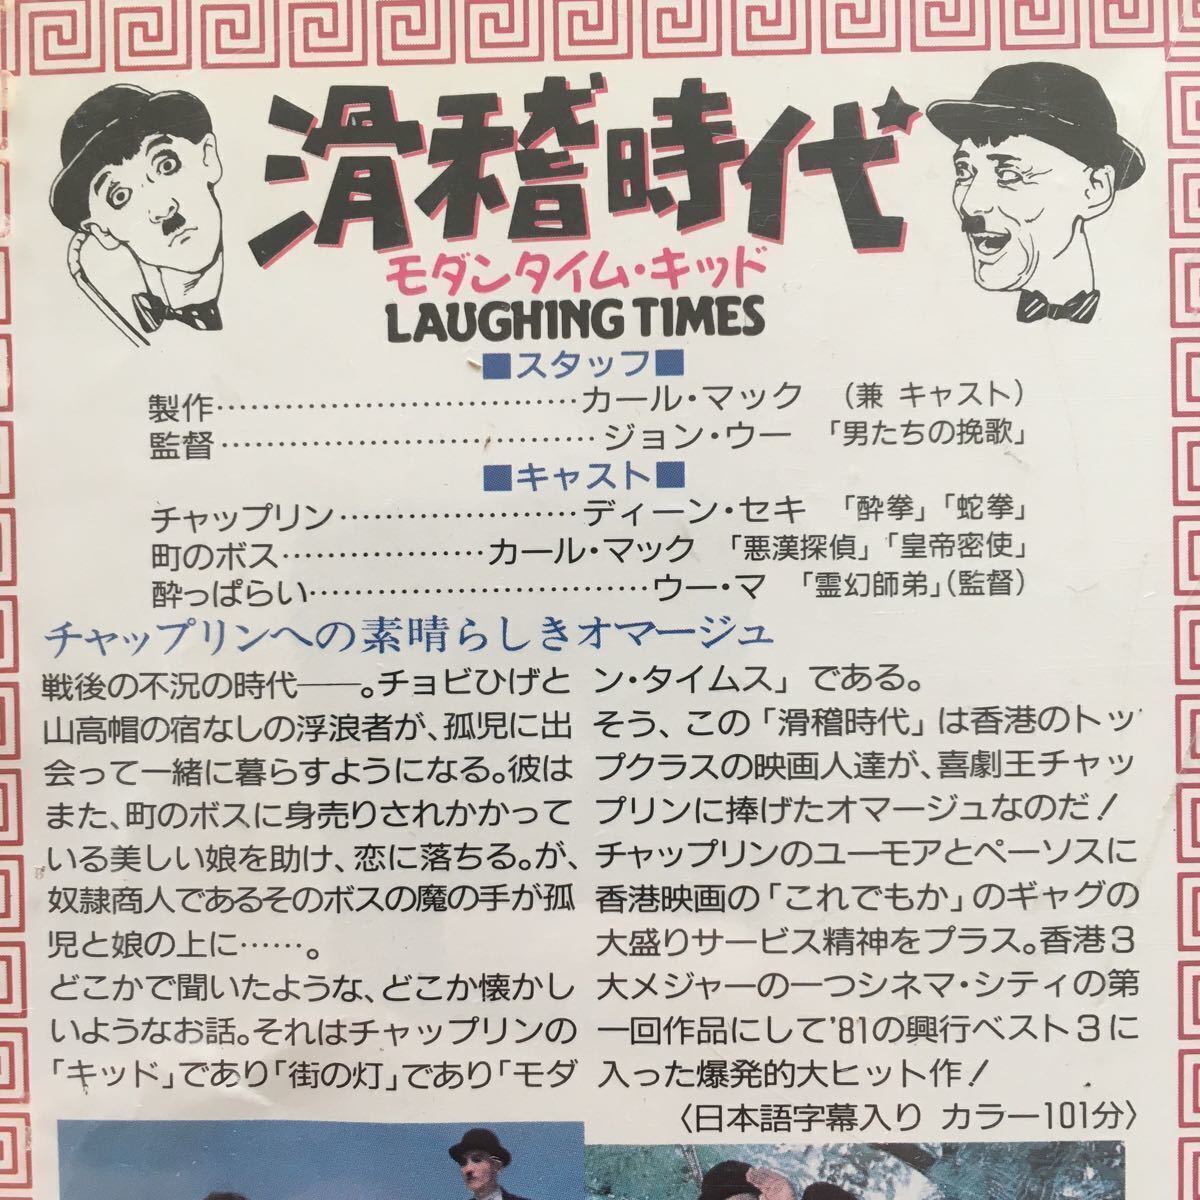 滑稽時代
モダンタイム・キッド
LAUGHING TIMES
■スタッフ■
製作……………………………カール・マック （兼 キャスト）
監督……………………………ジョン・ウー 「男たちの挽歌」
■キャスト■
チャップリン…………………ディーン・セキ 「酔拳」「蛇拳」
町のボス………………カール・マック 「悪漢探偵」「皇帝密使」
酔っぱらい…………………………ウー・マ 「霊幻師弟」（監督）
チャップリンへの素晴らしきオマージュ
戦後の不況の時代――。チョビひげと
山高帽の宿なしの浮浪者が、孤児に出
会って一緒に暮らすようになる。彼は
また、町のボスに身売りされかかって
いる美しい娘を助け、恋に落ちる。が、
奴隷商人であるそのボスの魔の手が孤
児と娘の上に……。
どこかで聞いたような、どこか懐かし
いようなお話。それはチャップリンの
「キッド」であり「街の灯」であり「モダ
ン・タイムス」である。
そう、この「滑稽時代」は香港のトッ
プクラスの映画人達が、喜劇王チャッ
プリンに捧げたオマージュなのだ！
チャップリンのユーモアとペーソスに
香港映画の「これでもか」のギャグの
大盛りサービス精神をプラス。香港3
大メジャーの一つシネマ・シティの第
一回作品にして'81の興行ベスト3に
入った爆発的大ヒット作！
〈日本語字幕入り カラー101分〉